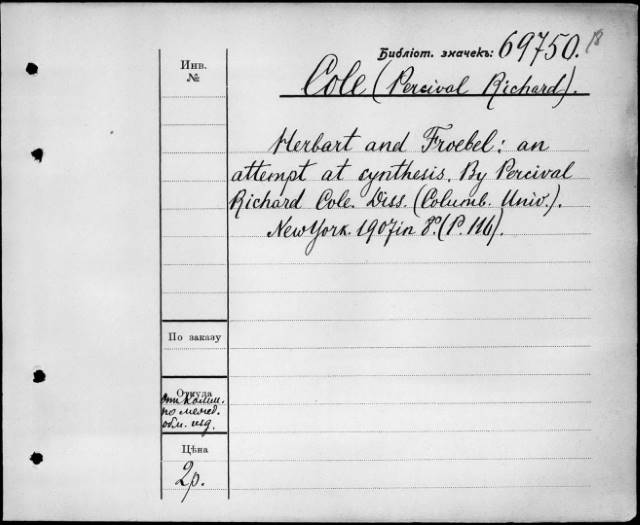 Библіот. значекъ: 69750.
18
Инв.
№
Cole (Percival Richard).
Herbart and Froebel: an
attempt at synthesis. By Percival
Richard Cole. Diss. (Columb. Univ.).
New York. 1907 in 8º. (P. 116).
По заказу
Откуда
от Комм.
по межд.
обм. изд.
Цѣна
2р.